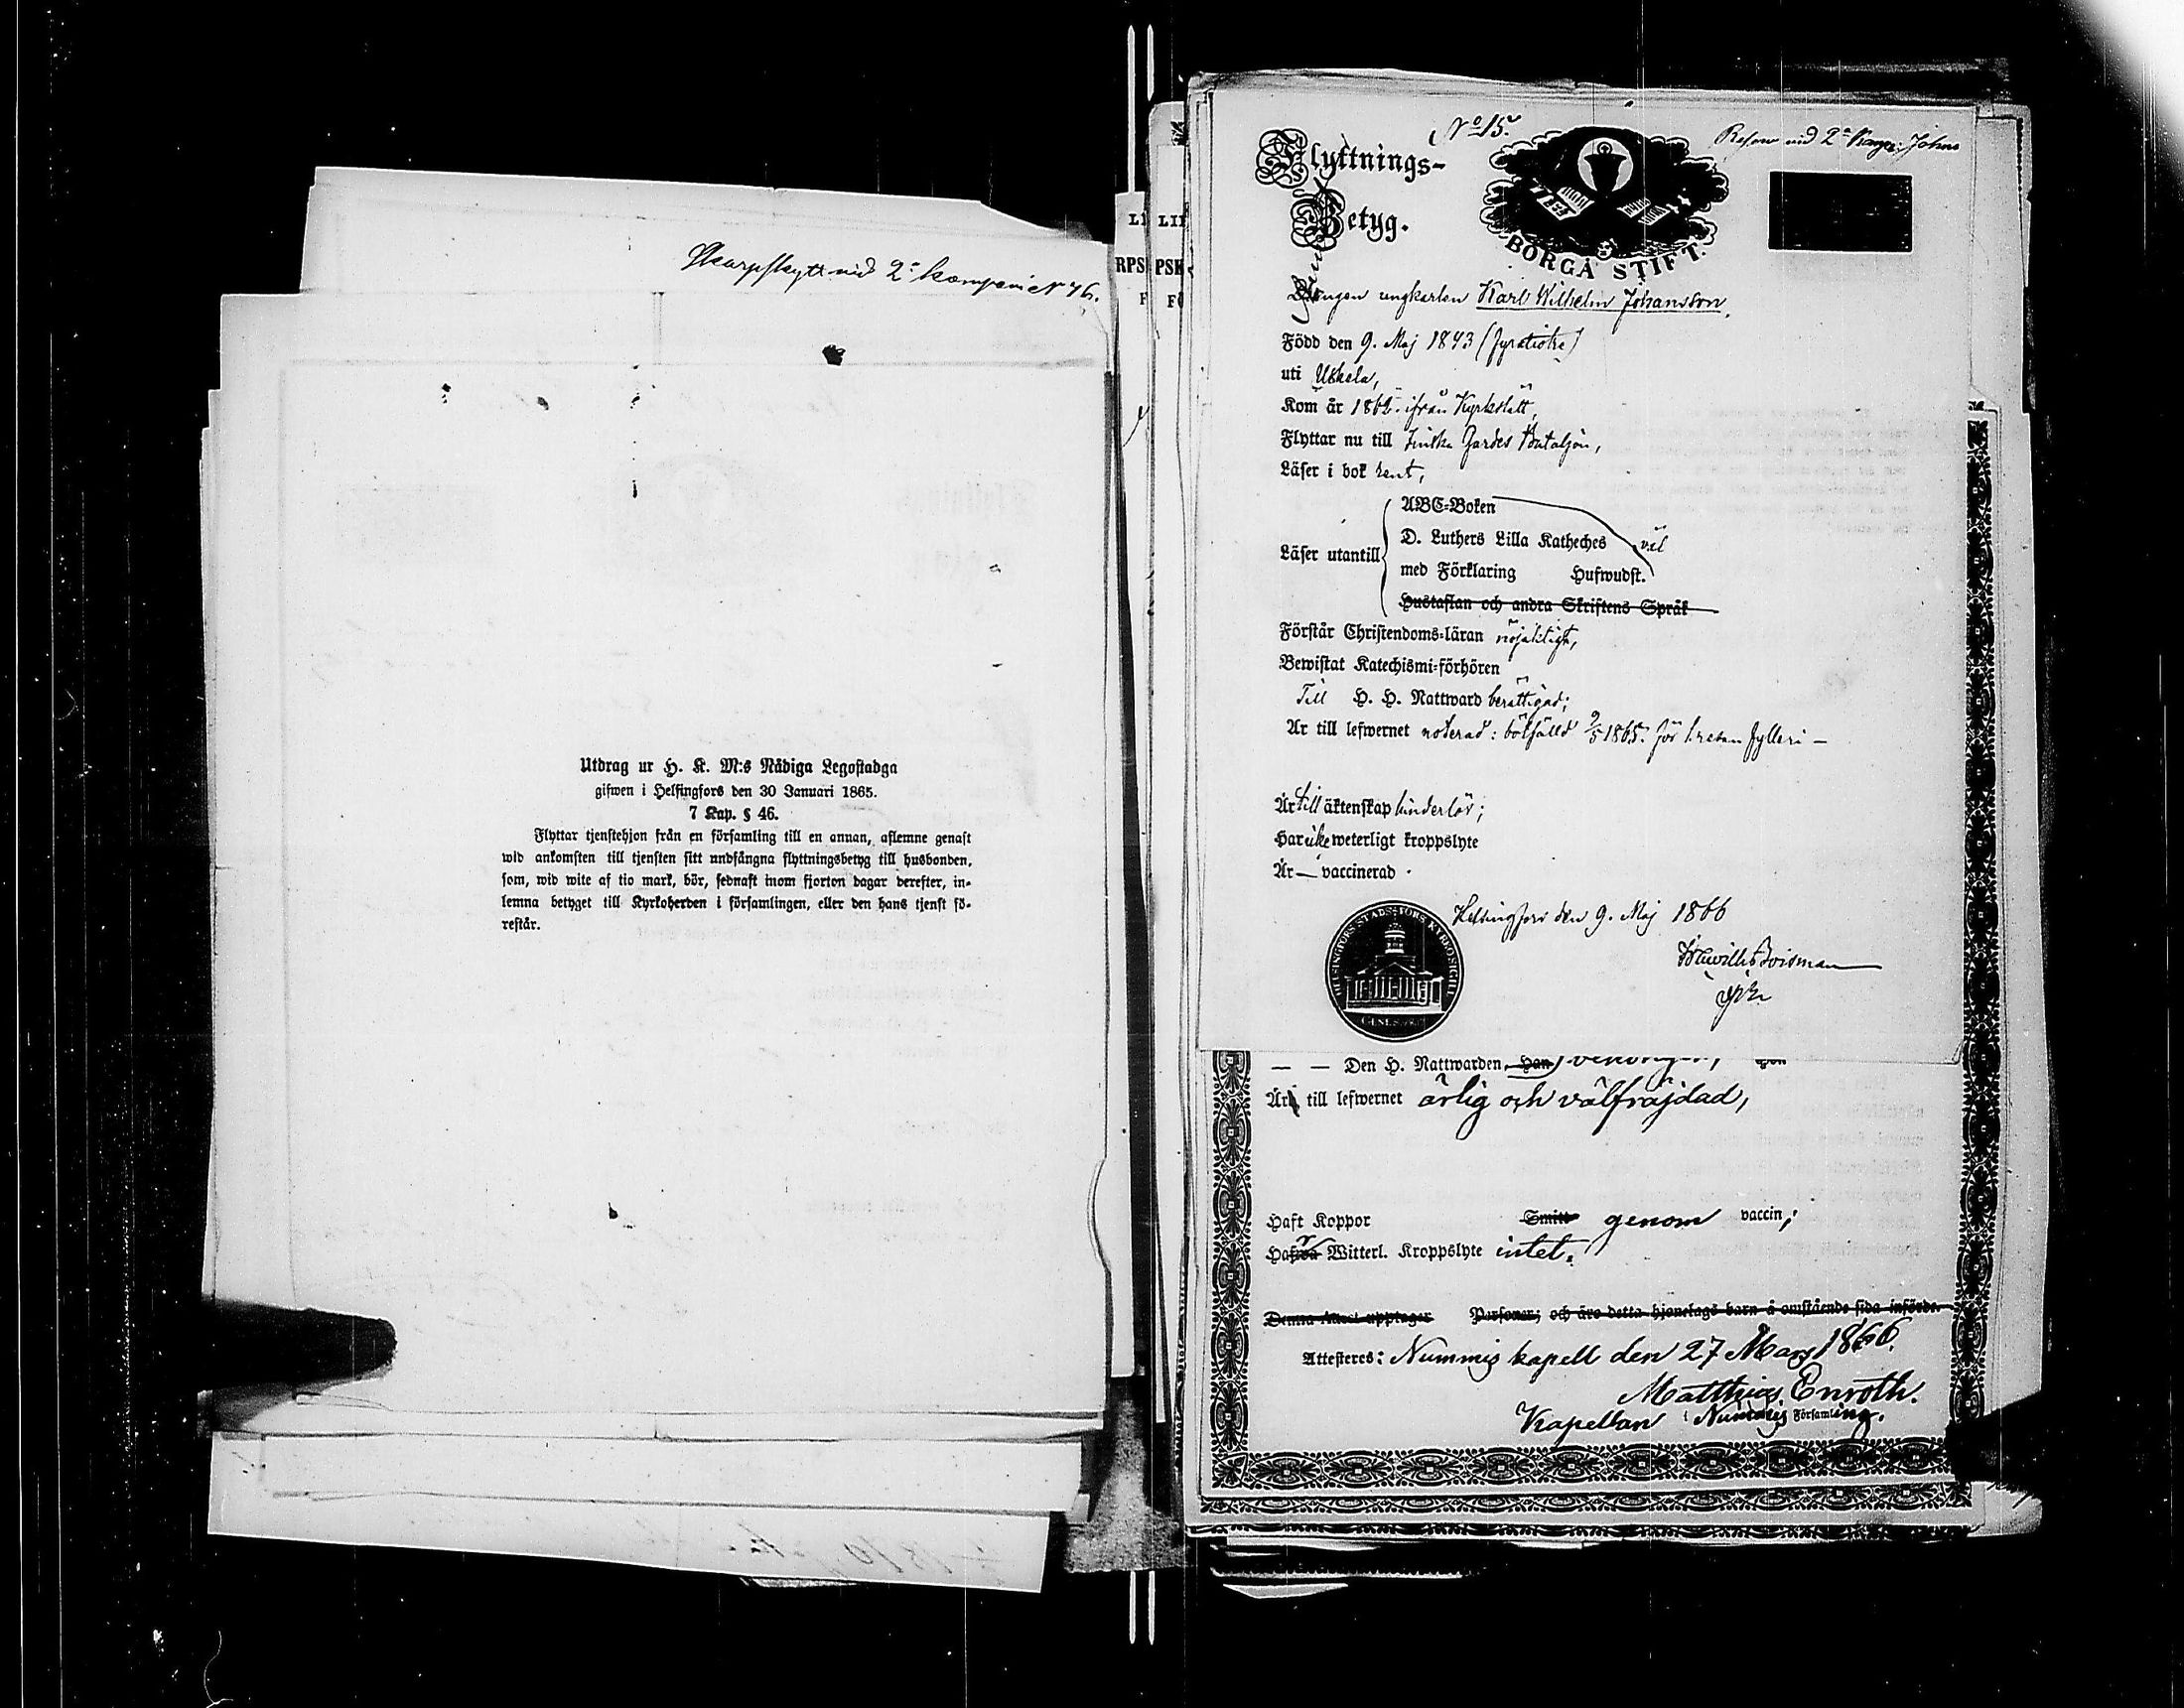 Skarpskytt vid 2a kompaniet 46.
Utdrag ur H. K. M:s Nådiga Legostadga
gifwen i Helsingfors den 30 Januari 1865.
7 Kap. § 46.
Flyttar tjenstehjon från en församling till en annan, aflemne genast
wid ankomsten till tjensten sitt undfångna flyttningsbetyg till husbonden,
som, wid wite af tio mark, bör, sednast inom fjorton dagar derefter, in-
lemna betyget till Kyrkoherden i församlingen, eller den hans tjenst fö-
restår.
LI
LII
RPS
PSK
F
FÖ
No 15.
Flyttnings-
Betyg.
BORGÅ STIFT.
vid 2a
Drengen ungkarlen Karl Wilhelm Johansson,
Född den 9. Maj 1843 (fyratiotre)
uti Uskela,
Kom år 1862. ifrån Kyrkslätt,
Flyttar nu till Finska Gardes Bataljon,
Läser i bok rent,
Läser utantill
ABC-Boken
D. Luthers Lilla Katheches väl
med Förklaring Hufwudst.
Hustaflan och andra Skriftens Språk
Förstår Christendoms-läran nöjaktigt,
Bewistat Katechismi-förhören
Till H. H. Nattward berättigad;
Är till lefwernet noterad: bötfälld 9/5 1865. för fylleri –
Är till äktenskap hinderlös;
Har icke weterligt kroppslyte
Är — vaccinerad
Helsingfors den 9. Maj 1866
HELSINGFORS STADS KYRKOSIGILL
— — Den H. Nattwarden, Han
Är till lefwernet ärlig och välfräjdad,
Haft Koppor Smitt genom vaccin;
Hafwa Witterl. Kroppslyte intet.
Denna Attest upptager Personer; och äro detta hjonelags barn å omstående sida införde.
Attesteres: Nummis kapell den 27 Mars 1866.
Matthias Enroth.
Kapellan i Nummis Församling.